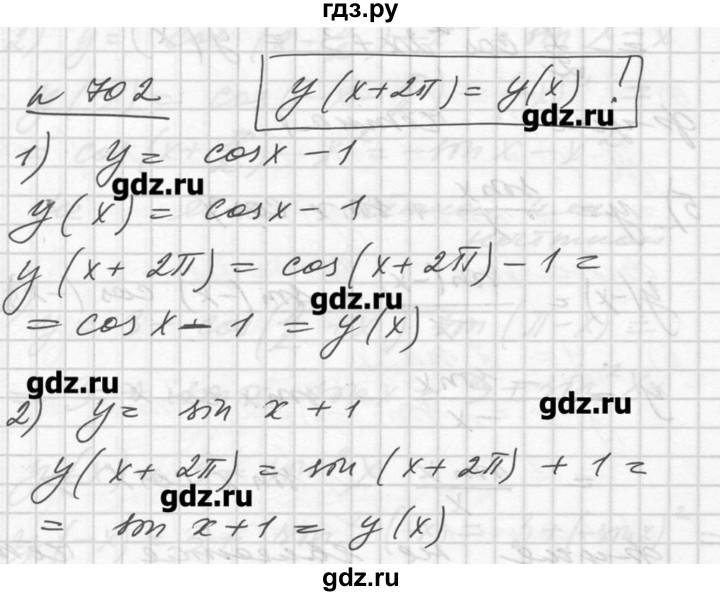 гдз.ру
№ 702
y(x+2π) = y(x) !
gdz.ru
1) y = cosx - 1
gdz.ru
y(x) = cosx - 1
y(x + 2π) = cos(x + 2π) - 1 =
gdz.ru
= cos x - 1 = y(x)
gdz.ru
gdz.ru
2) y = sin x + 1
y(x + 2π) = sin(x + 2π) + 1 =
gdz.ru
= sin x + 1 = y(x)
gdz.ru